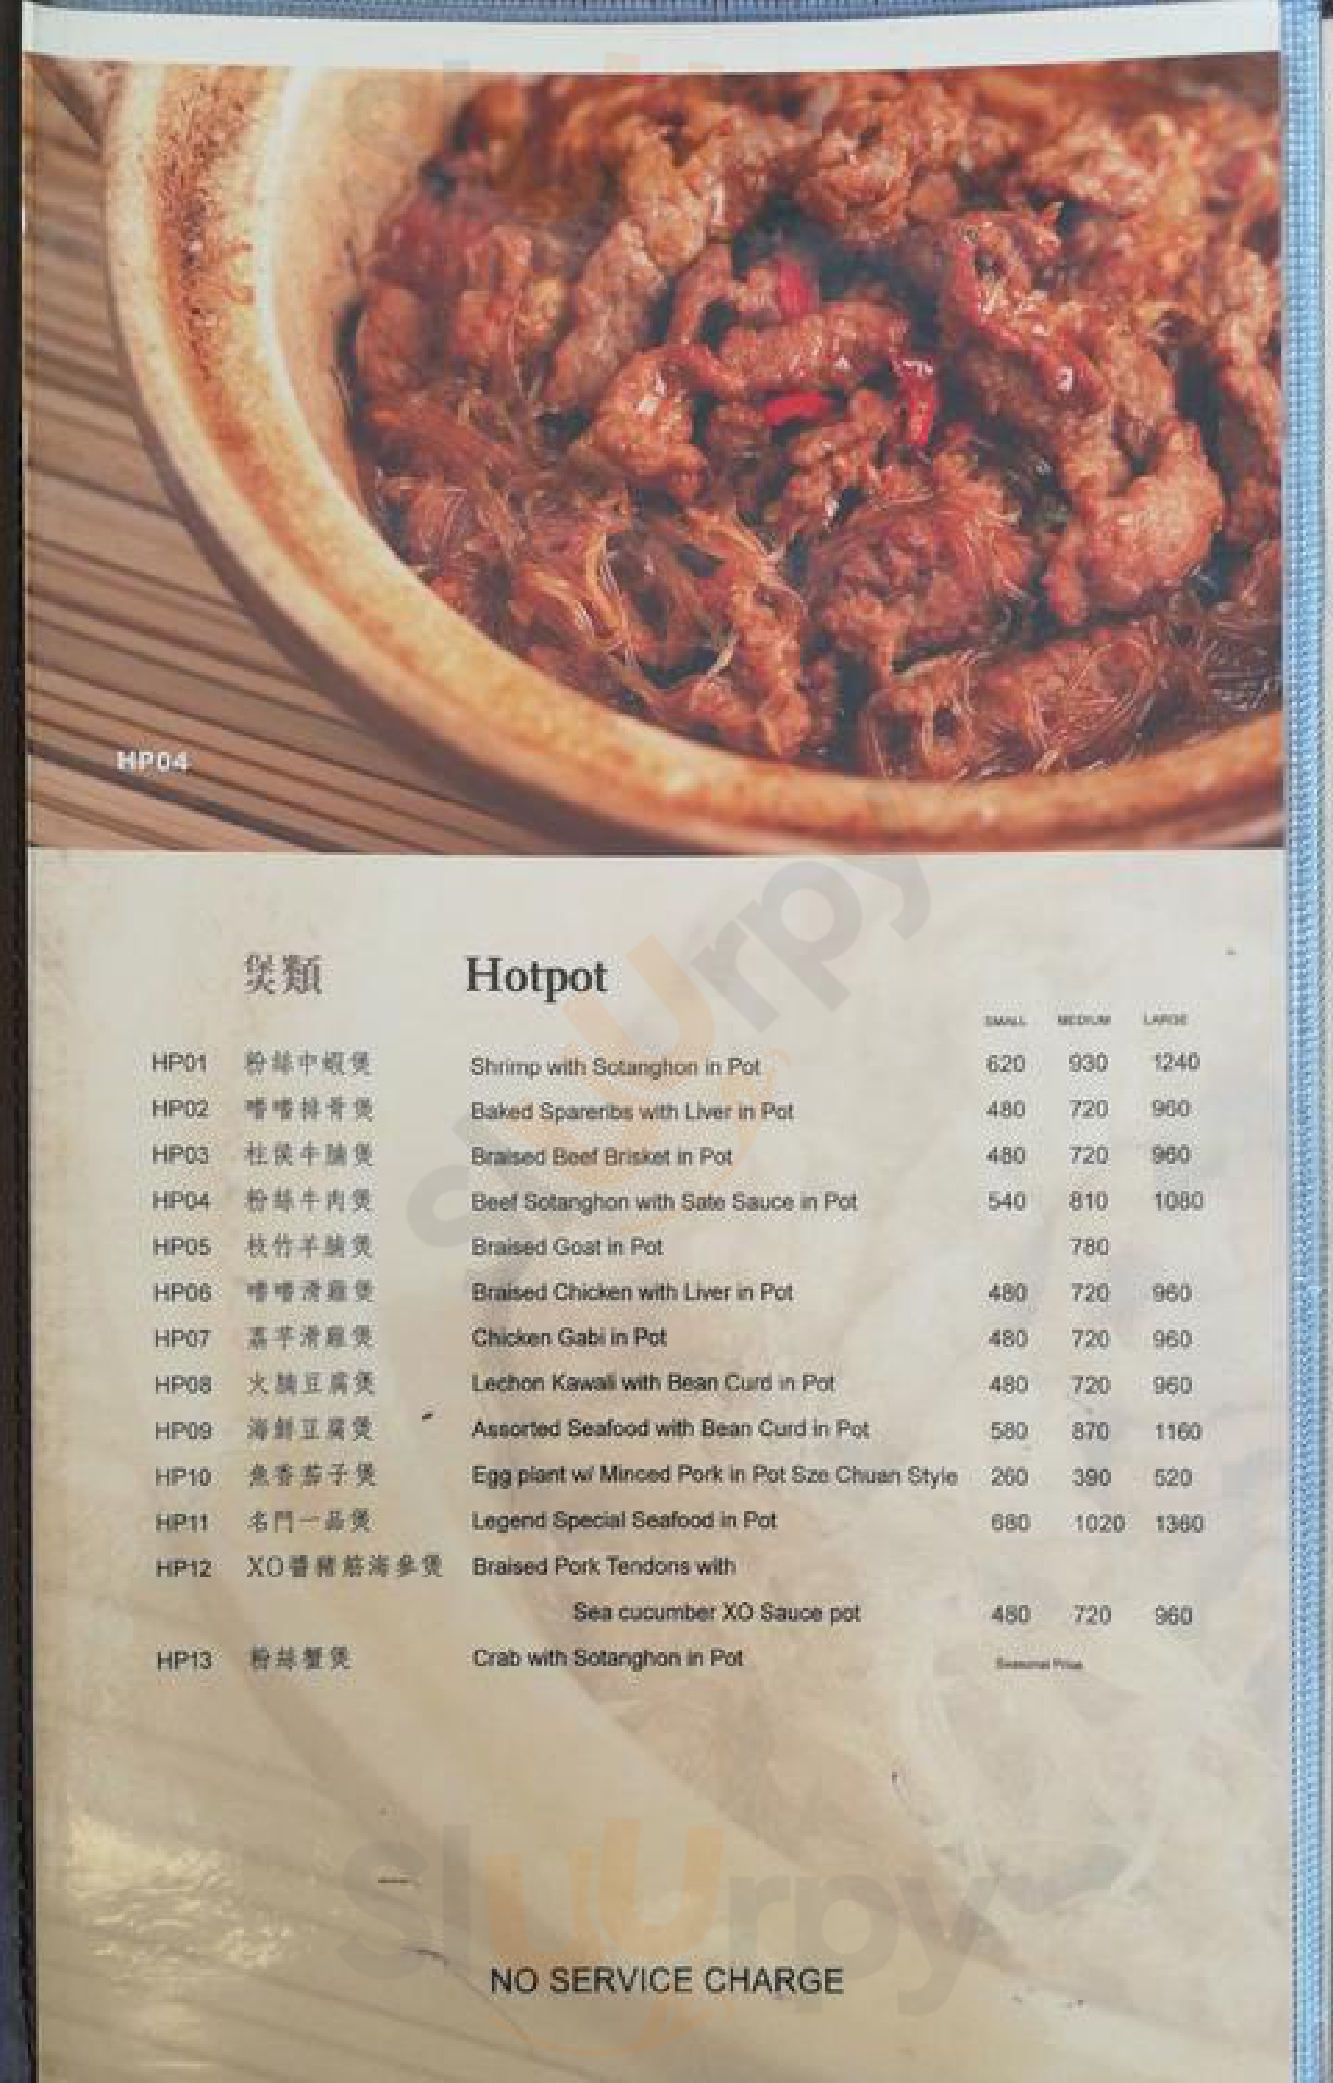 HP04
煲類 Hotpot
SMALL MEDIUM LARGE
HP01 粉絲中蝦煲 Shrimp with Sotanghon in Pot 620 930 1240
HP02 嗜嗜排骨煲 Baked Spareribs with Liver in Pot 480 720 960
HP03 柱侯牛腩煲 Braised Beef Brisket in Pot 480 720 960
HP04 粉絲牛肉煲 Beef Sotanghon with Sate Sauce in Pot 540 810 1080
HP05 枝竹羊腩煲 Braised Goat in Pot 780
HP06 嗜嗜滑雞煲 Braised Chicken with Liver in Pot 480 720 960
HP07 荔芋滑雞煲 Chicken Gabi in Pot 480 720 960
HP08 火腩豆腐煲 Lechon Kawali with Bean Curd in Pot 480 720 960
HP09 海鮮豆腐煲 Assorted Seafood with Bean Curd in Pot 580 870 1160
HP10 魚香茄子煲 Egg plant w/ Minced Pork in Pot Sze Chuan Style 260 390 520
HP11 名門一品煲 Legend Special Seafood in Pot 680 1020 1360
HP12 XO醬豬筋海參煲 Braised Pork Tendons with
Sea cucumber XO Sauce pot 480 720 960
HP13 粉絲蟹煲 Crab with Sotanghon in Pot Seasonal Price
NO SERVICE CHARGE
Sluurpy
Sluurpy